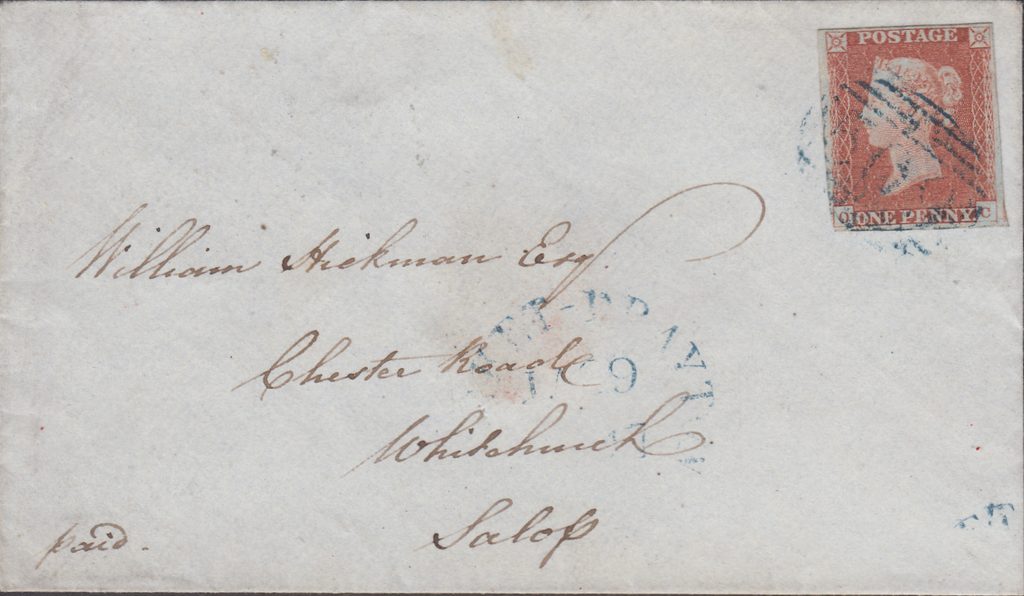 POSTAGE
O ONE PENNY C
William Hickman Esq.
Chester Road
Whitchurch
Salop
paid.